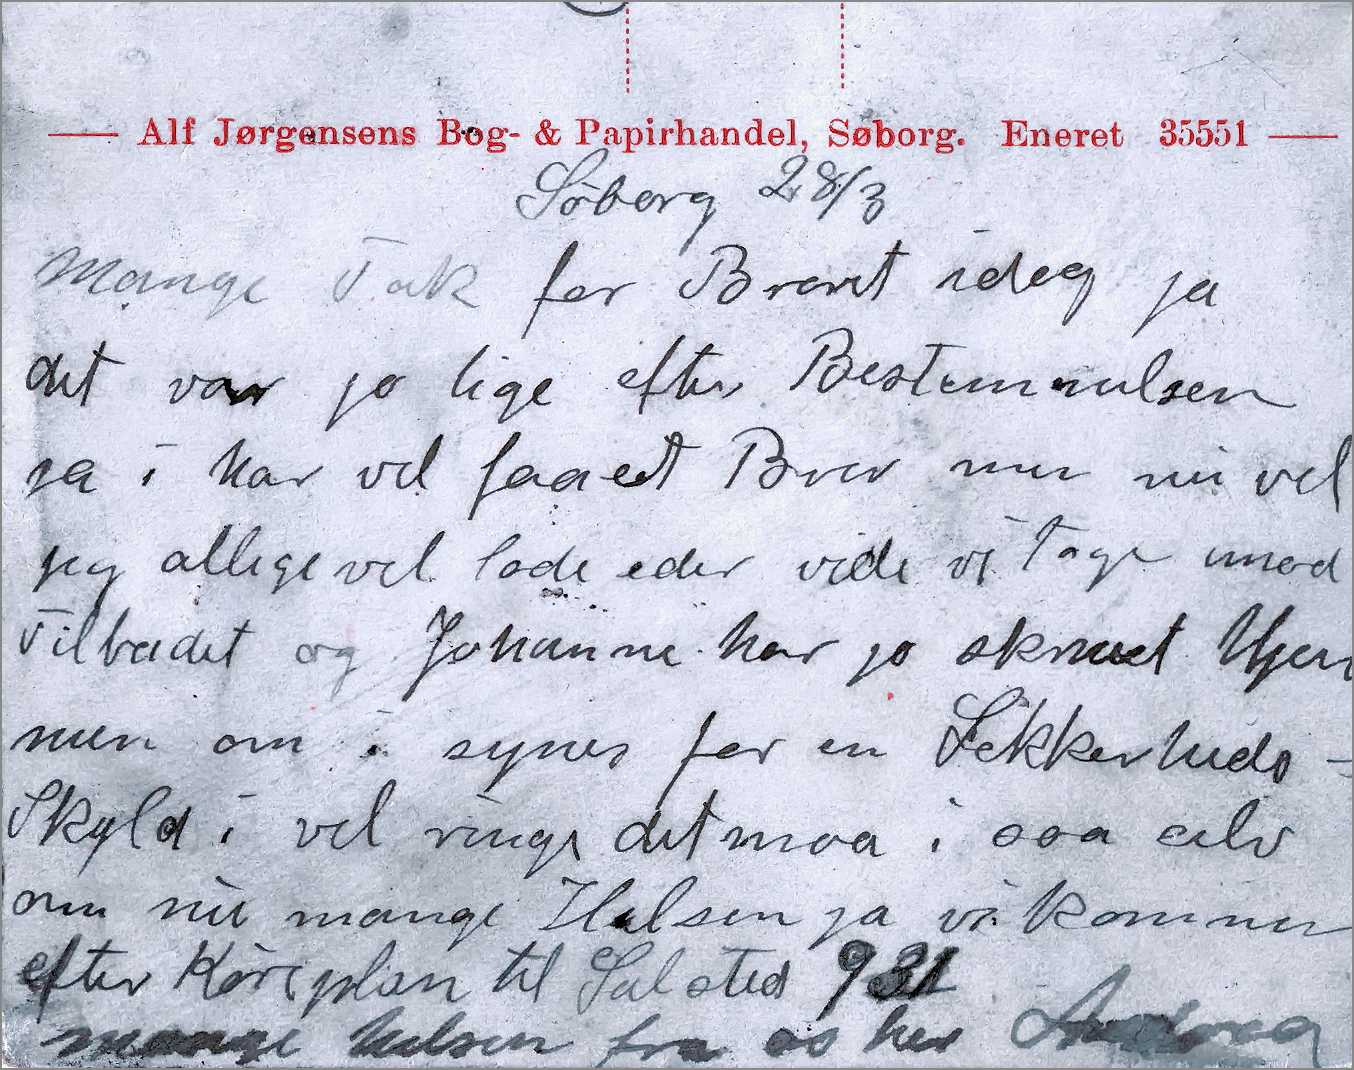 Alf Jørgensens Bog- & Papirhandel, Søborg. Eneret 35551
Søborg 28/3
Mange Tak for Brevet idag ja
det var jo lige efter Bestemmelsen
ja i har vel faaet Brev men nu vel
jeg alligevel lade eder vide vi Tage imod
Tilbudet og Johanne har jo skrevet Hjem
men om i synes for en Sikkerheds-
Skyld i vel ringe det maa i saa selv
om nu mange Hilsen ja vi kommer
efter Køreplan til Sulsted 931
mange hilsen fra os her